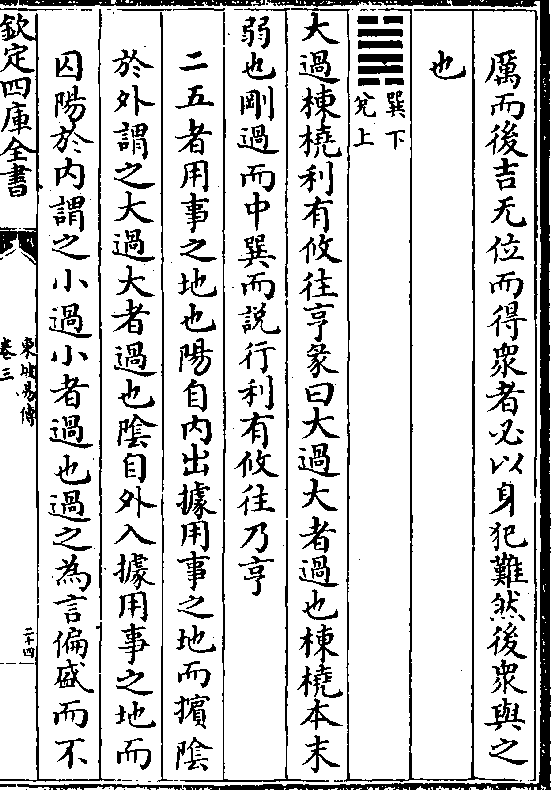 厲而後吉无位而得衆者必以身犯難然後衆與之
也
䷛巽下兌上
大過棟橈利有攸往亨彖曰大過大者過也棟橈本末
弱也剛過而中巽而說行利有攸往乃亨
二五者用事之地也陽自內出據用事之地而擯陰
於外謂之大過大者過也陰自外入據用事之地而
囚陽於內謂之小過小者過也過之為言偏盛而不
欽定四庫全書
東坡易傳
卷三
二十四